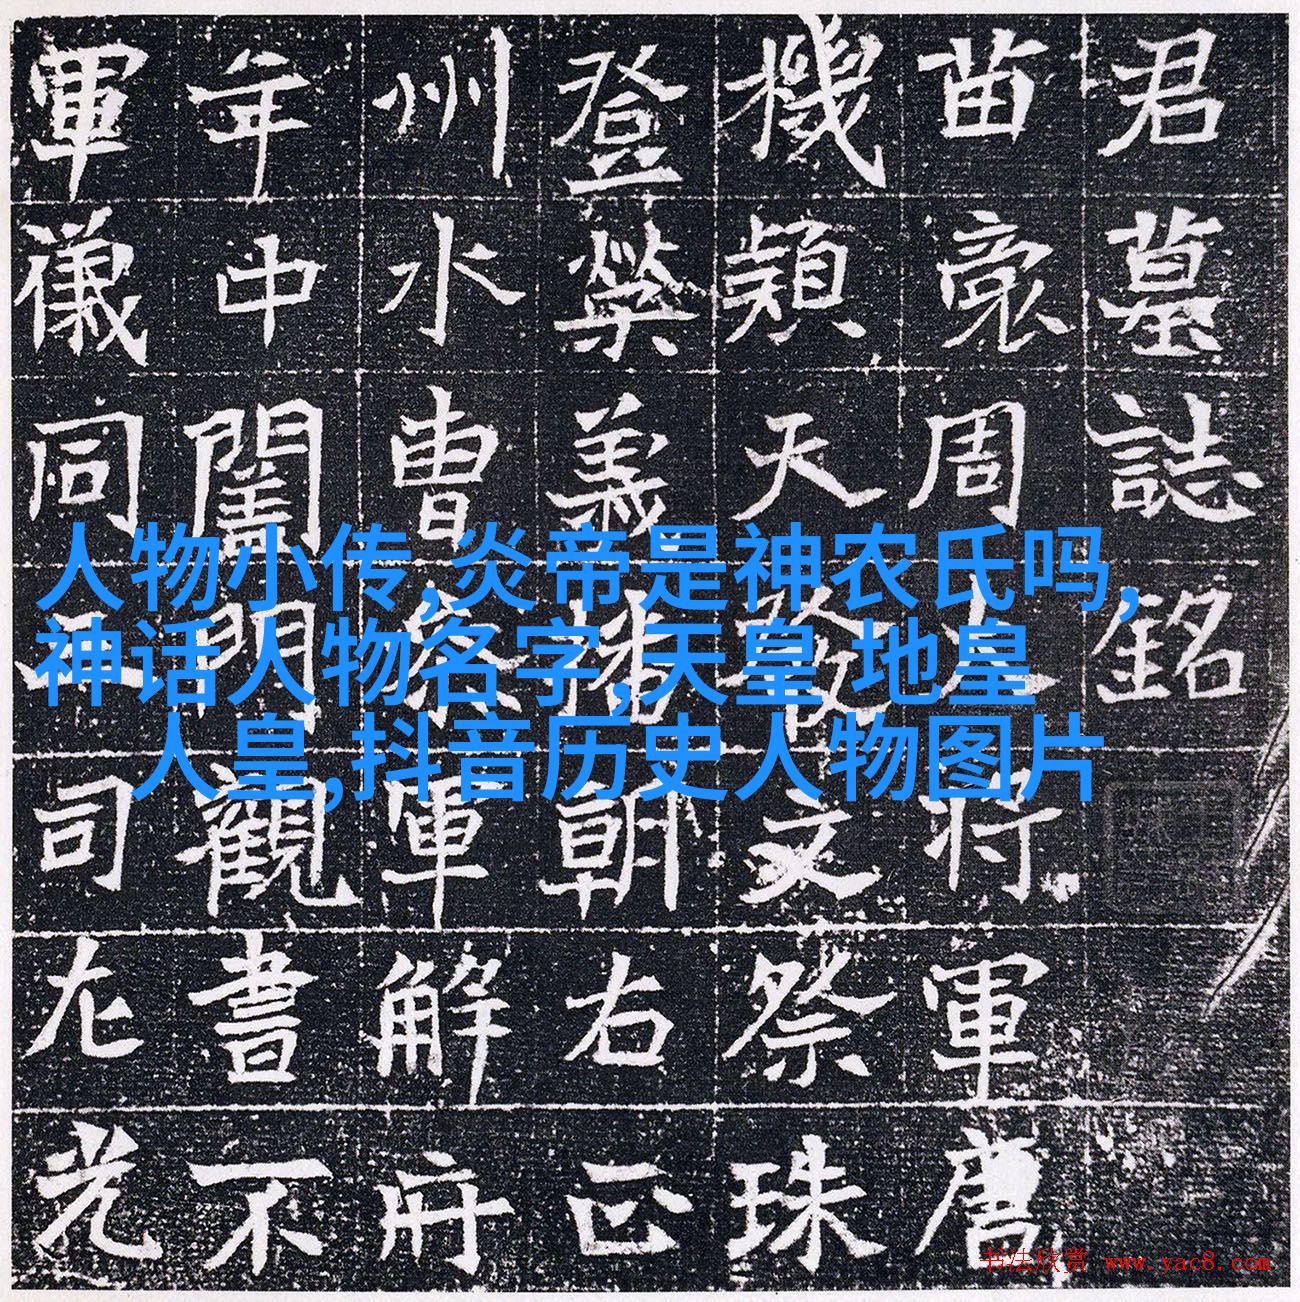 君墓誌銘
苗裔周將軍唐
機穎天文祭珠
登榮義播朝右正
州水曹參軍解
年中閶門觀書不
軍儀同三司左光
人物小传,炎帝是神农氏吗,
神话人物名字,天皇 地皇
人皇,抖音历史人物图片
书法欣赏 www.yac8.com